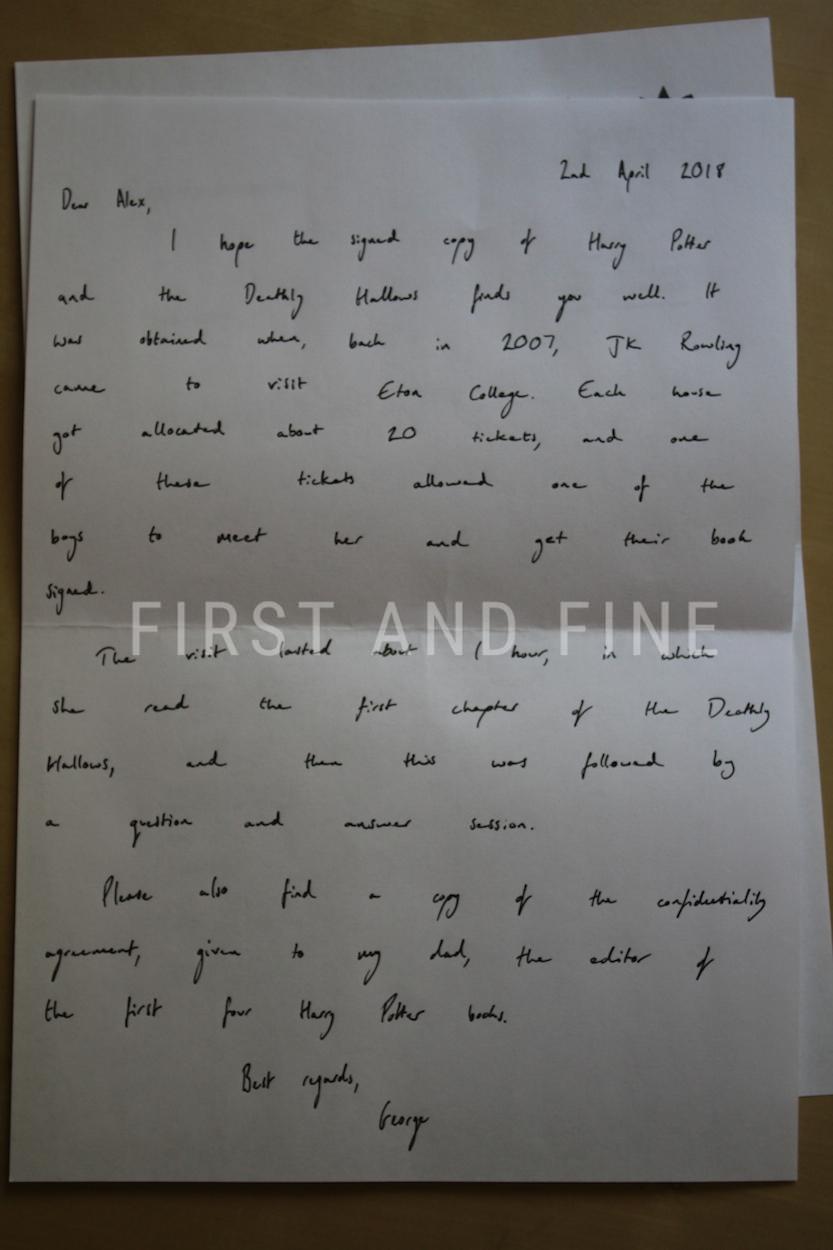 2nd April 2018
Dear Alex,
I hope the signed copy of Harry Potter
and the Deathly Hallows finds you well. It
was obtained when, back in 2007, JK Rowling
came to visit Eton College. Each house
got allocated about 20 tickets, and one
of these tickets allowed one of the
boys to meet her and get their book
signed.
FIRST AND FINE
The visit lasted about 1 hour, in which
she read the first chapter of the Deathly
Hallows, and then this was followed by
a question and answer session.
Please also find a copy of the confidentiality
agreement, given to my dad, the editor of
the first four Harry Potter books.
Best regards,
George